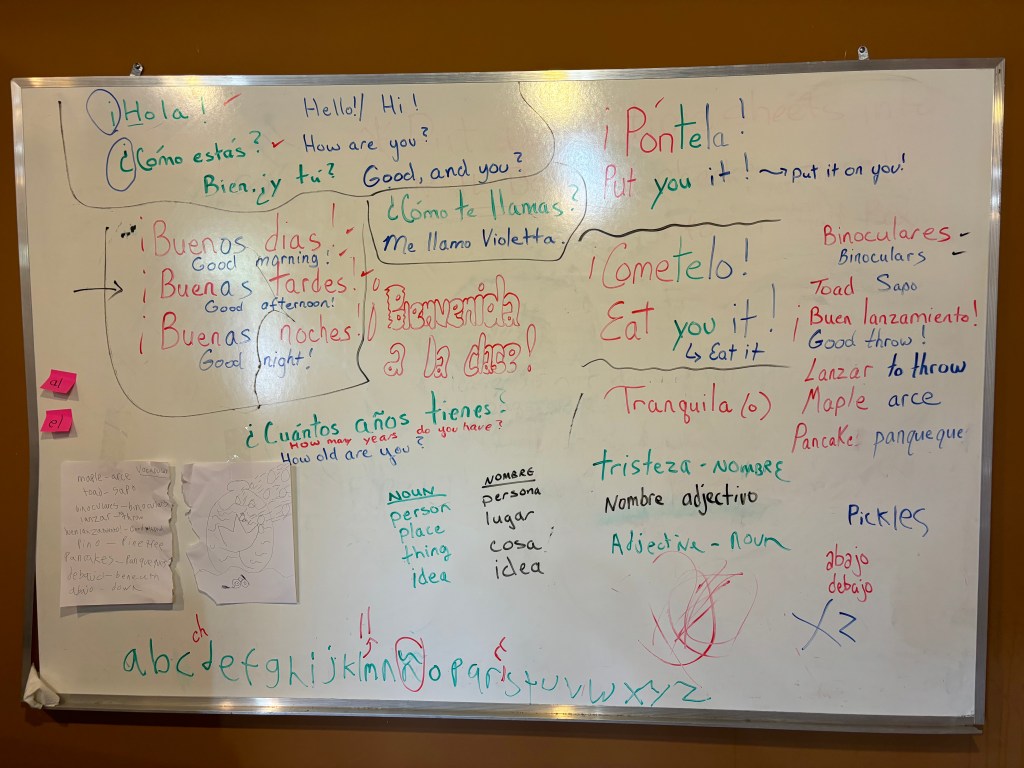 ¡Hola! Hello!/ Hi!
¿Cómo estás? How are you?
Bien ¿y tú? Good, and you?
¿Cómo te llamas?
Me llamo Violetta.
¡Buenos días!
Good morning!
¡Buenas tardes!
Good afternoon!
¡Buenas noches!
Good night!
¡Bienvenida
a la clase!
¿Cuántos años tienes?
How many years do you have?
How old are you?
¡Póntela!
Put you it! → put it on you!
¡Cometelo!
Eat you it!
↳ Eat it
Tranquila (o)
Binoculares -
Binoculars -
Toad Sapo
¡Buen lanzamiento!
Good throw!
Lanzar to throw
Maple arce
Pancake panqueque
a/
e/
maple - arce
toad - sapo
lanzar - throw
Pine - Pine tree
debajo - beneath
abajo - down
NOUN
person
place
thing
idea
NOMBRE
persona
lugar
cosa
idea
tristeza - NOMBRE
Nombre adjectivo
Adjective - Noun
Pickles
abajo
debajo
XZ
ch ll
abcdefghijklmnñopqrstuvwxyz